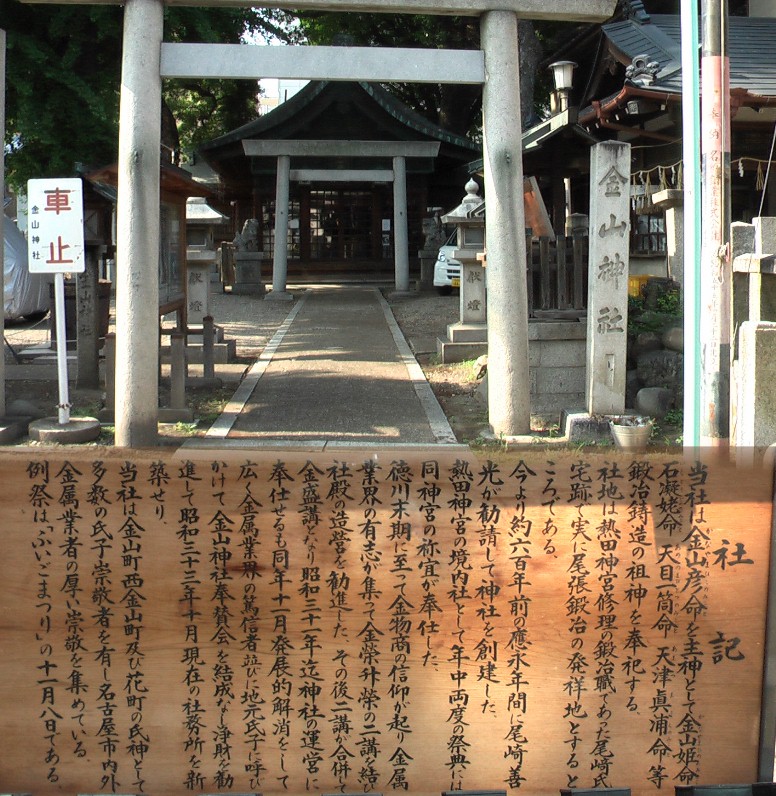 車止
金山神社
金山神社
献燈
献燈
社記
当社は金山彦命を主神として金山姫命
石凝姥命 天目一箇命 天津真浦命等
鍛冶鋳造の祖神を奉祀する。
社地は熱田神宮修理の鍛冶職であった尾崎氏
宅跡で実に尾張鍛冶の発祥地とすると
ころである。
今より約六百年前の應永年間に尾崎善
光が勧請して神社を創建した。
熱田神宮の境内社として年中両度の祭典には
同神宮の祢宜が奉仕した。
徳川末期に至って金物商の信仰が起り金属
業界の有志が集って金榮升榮の二講を結び
社殿の造営を勧進した、その後二講が合併して
金盛講となり昭和三十一年迄神社の運営に
奉仕せるも同年十一月発展的解消をして
広く金属業界の篤信者並びに地元氏子に呼び
かけて金山神社奉賛会を結成なし浄財を勧
進して昭和三十三年十月現在の社務所を新
築せり、
当社は金山町西金山町及び花町の氏神として
多数の氏子崇敬者を有し名古屋市内外
金属業者の厚い崇敬を集めている。
例祭は「ふいごまつり」の十一月八日である。